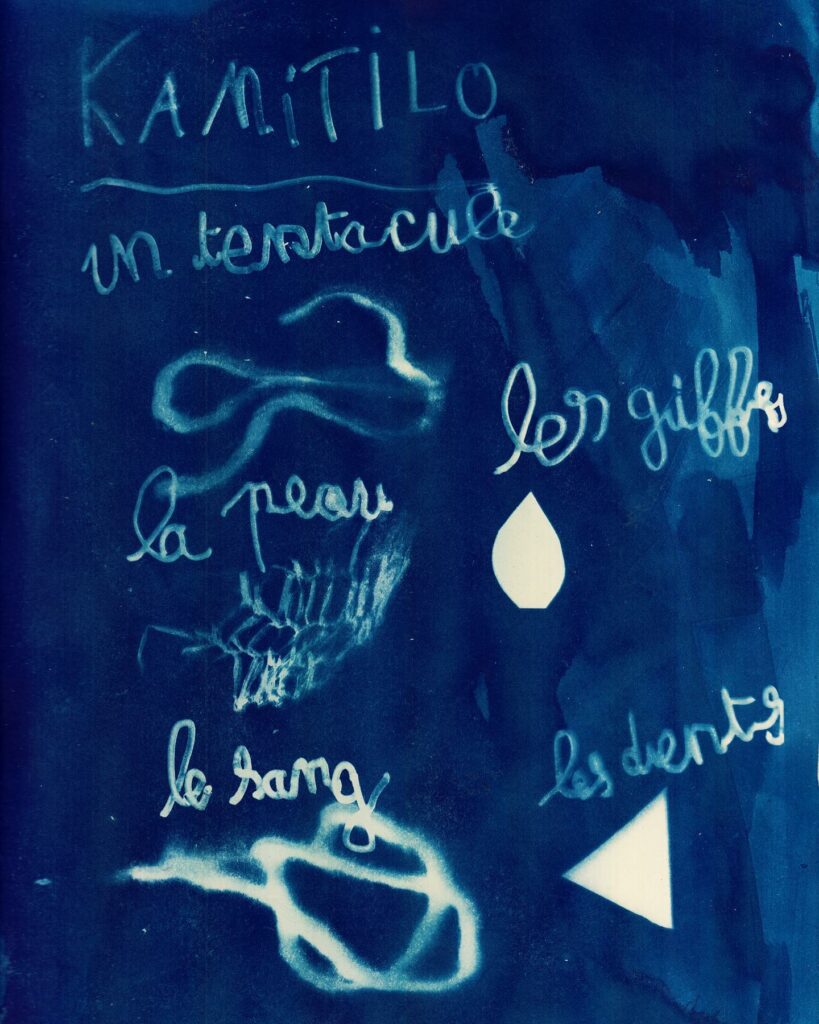 KAMiTiLO
un tentacule
les giffes
la peau
le sang
les dents